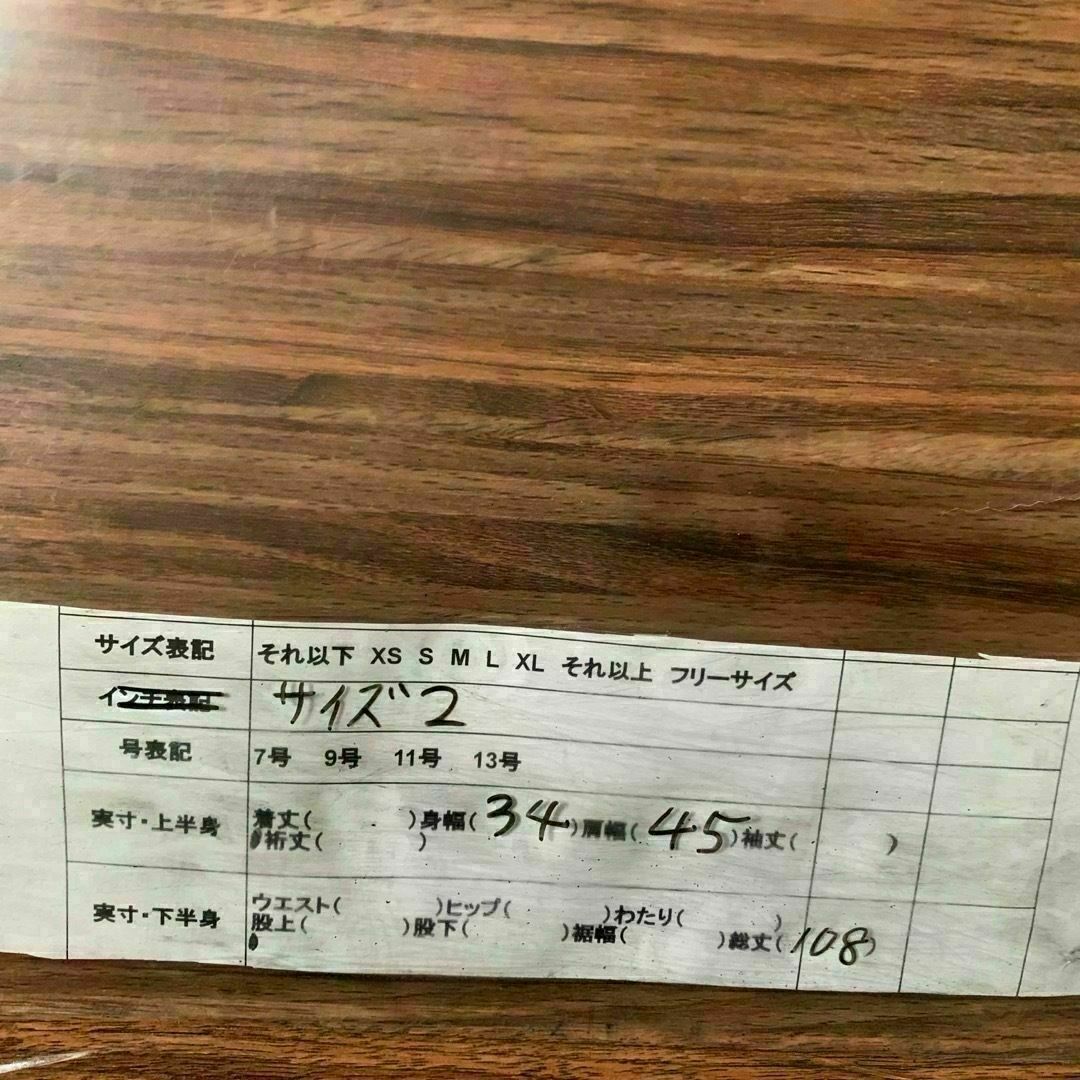 サイズ表記 それ以下 XS S M L XL それ以上 フリーサイズ
インチ表記 サイズ2
号表記 7号 9号 11号 13号
実寸・上半身 着丈( )身幅(34)肩幅(45)袖丈( )
裄丈( )
実寸・下半身 ウエスト( )ヒップ( )わたり( )
股上( )股下( )裾幅( )総丈(108)